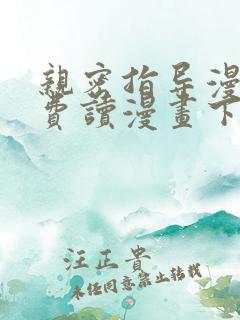 親密指导漫
費讀漫畫下
汪正貴
未经同意禁止转载